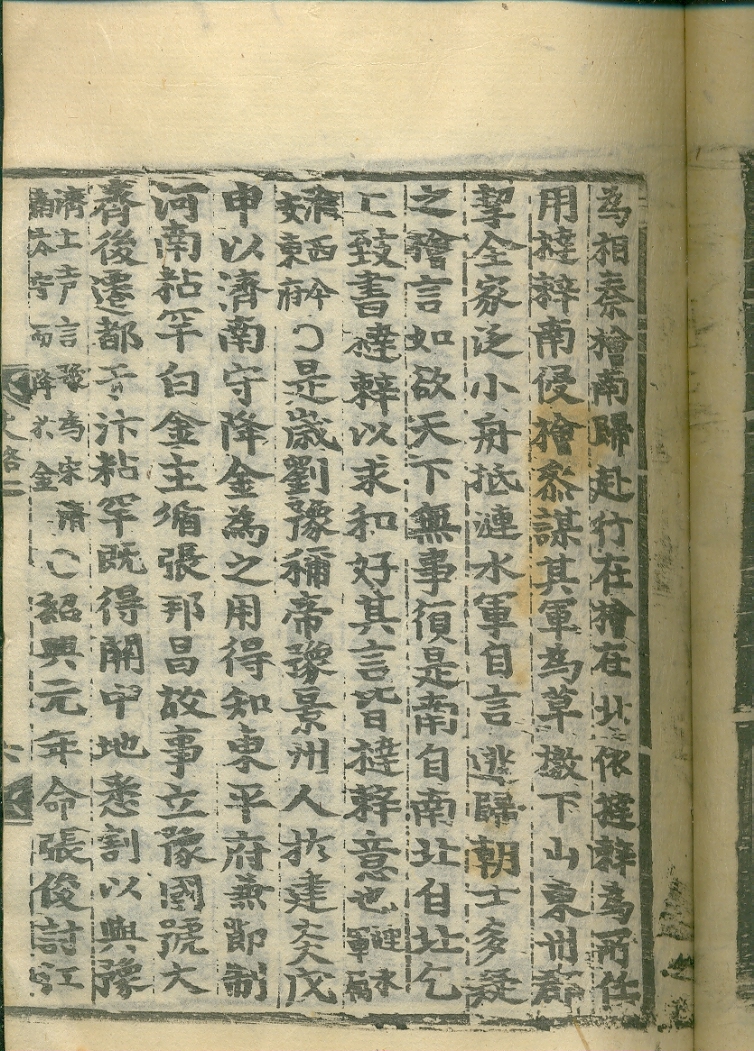 為相秦檜南歸赴行在檜在北依撻辢為所任
用撻辢南侵檜叅謀其軍為草檄下山東州郡
挈全家泛小舟抵漣水軍自言逃歸朝士多疑
之檜言如欲天下無事須是南自南北自北乞
上致書撻辢以求和好其言皆撻辢意也漣水軍屬
淮西今安東府〇是歲劉豫稱帝豫景州人於建炎戊
申以濟南守降金為之用得知東平府兼節制
河南粘罕白金主循張邦昌故事立豫國號大
齊後遷都于汴粘罕旣得關中地悉割以與豫
濟上言豫為宋濟南守而降於金〇紹興元年命張俊討江
史略二
六